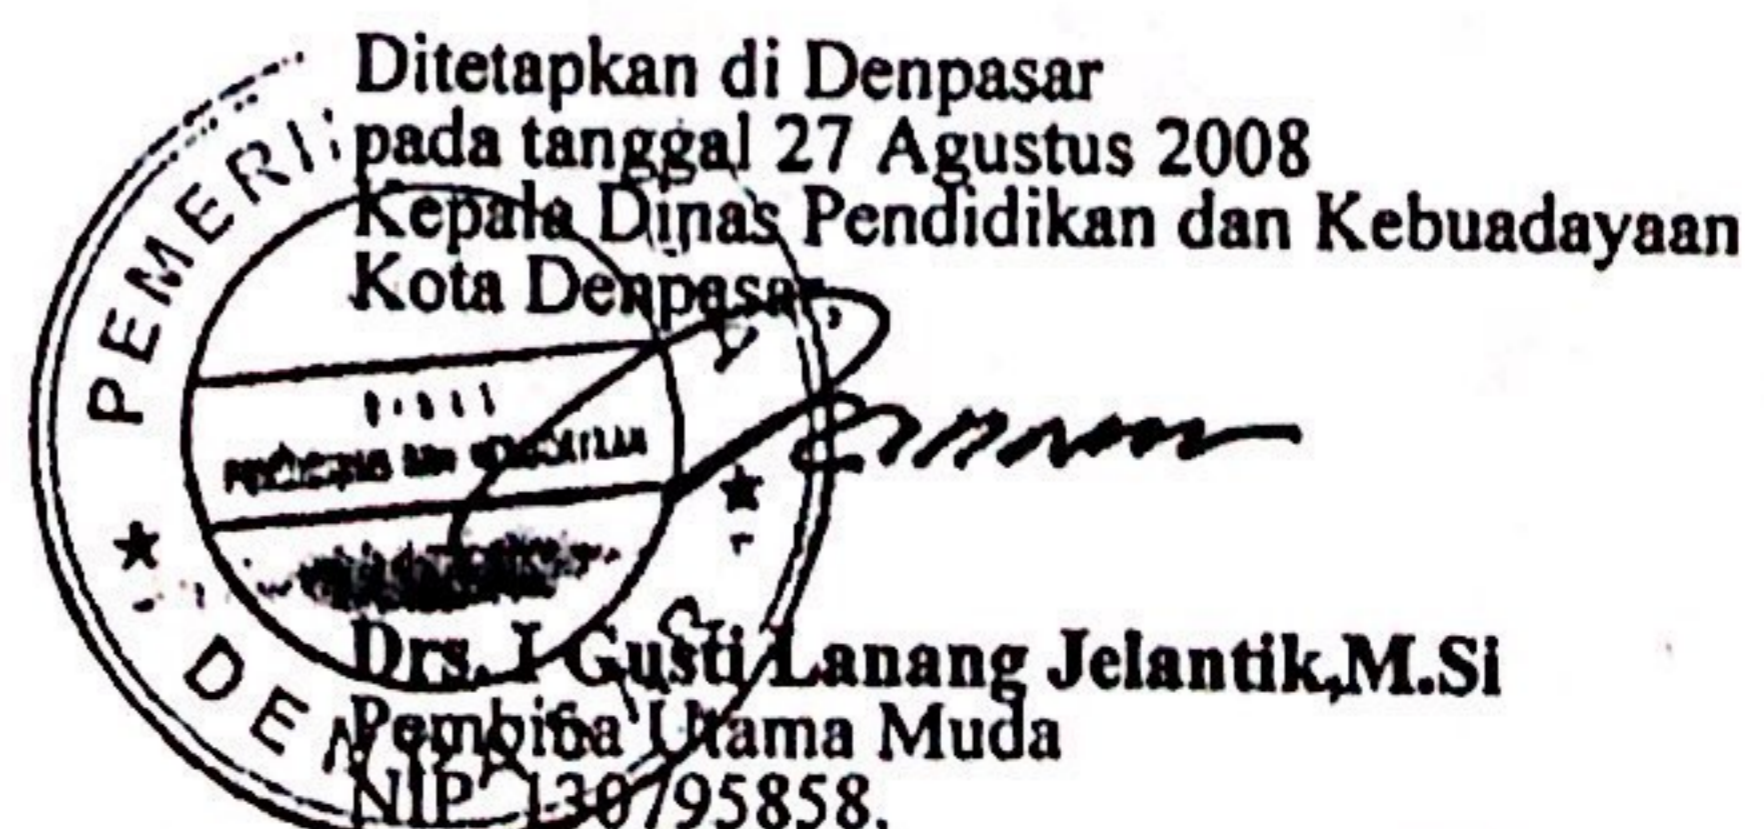 Ditetapkan di Denpasar
pada tanggal 27 Agustus 2008
Kepala Dinas Pendidikan dan Kebuadayaan
Kota Denpasar,
PEMERI
DAN
Drs. I Gusti Lanang Jelantik,M.Si
Pembina Utama Muda
NIP 130795858.
DENPAS